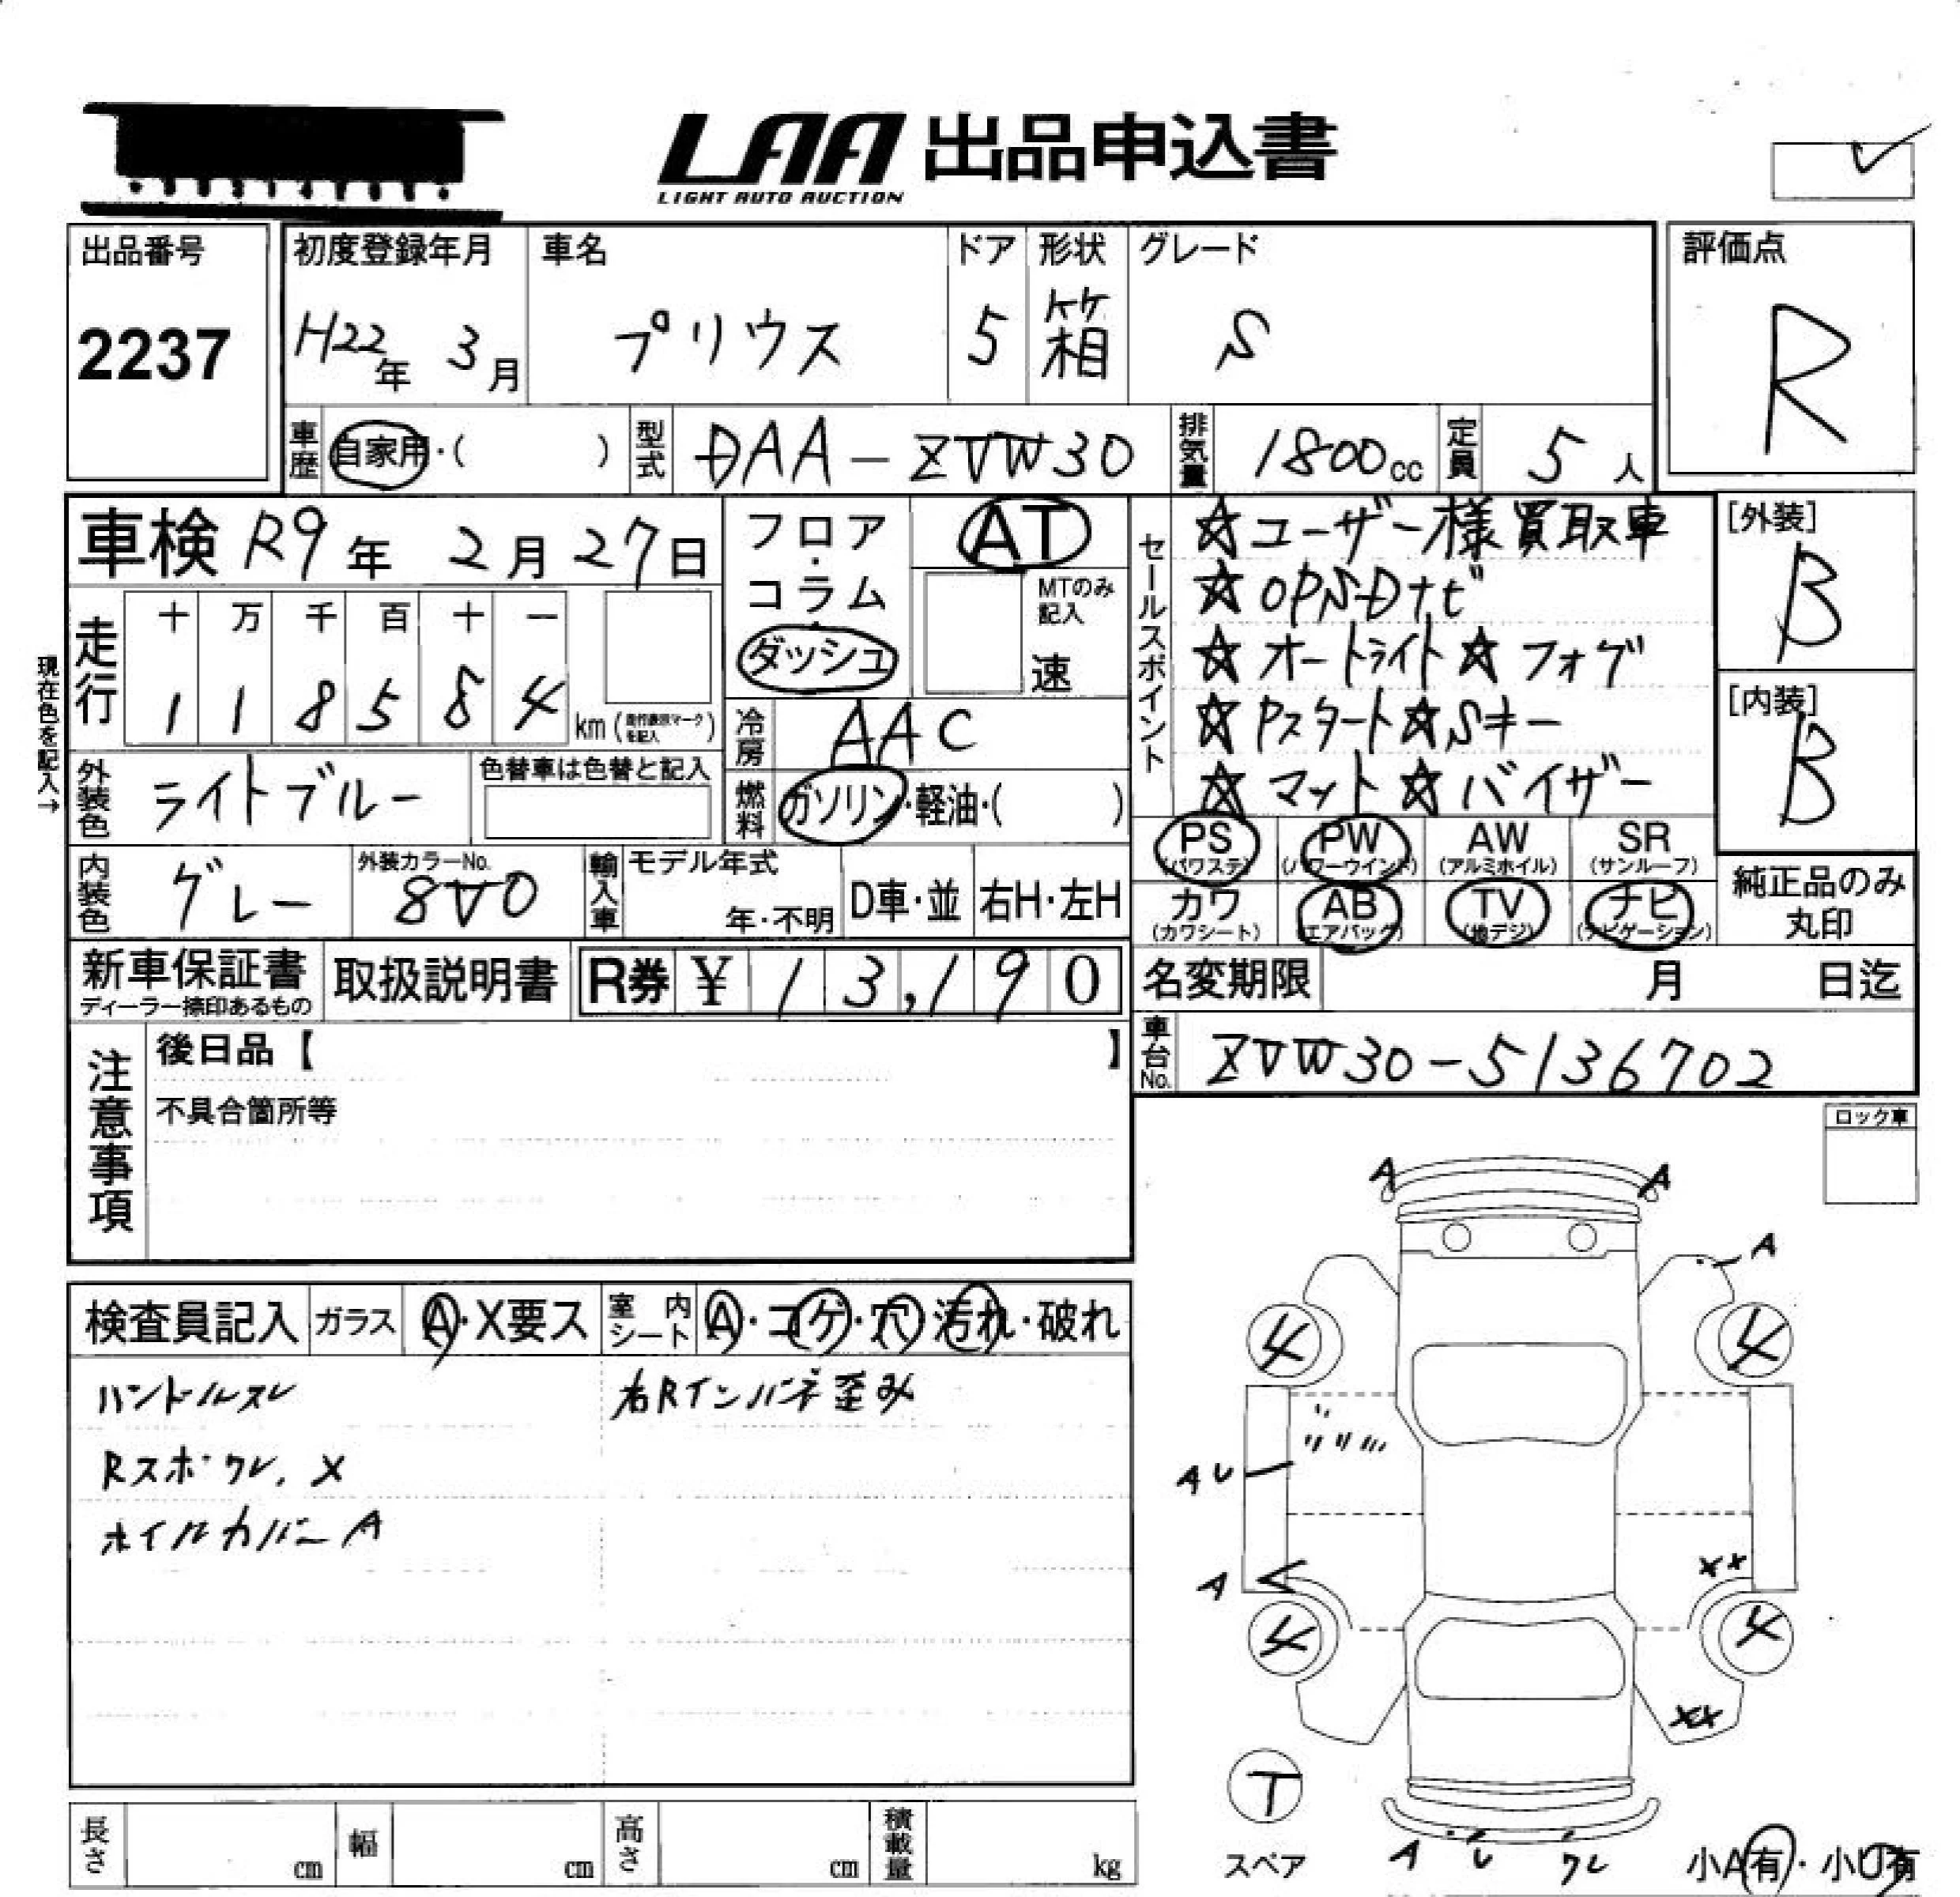 LAA 出品申込書
LIGHT AUTO AUCTION
出品番号
2237
初度登録年月
H22年 3月
車名
プリウス
ドア
5
形状
箱
グレード
S
評価点
R
車歴 自家用・( )
型式 DAA-ZVW30
排気量 1800cc
定員 5人
車検 R9年 2月27日
フロア・コラム・ダッシュ
AT
MTのみ記入
速
セールスポイント
☆ユーザー様買取車
☆OPSDナビ
☆オートライト☆フォグ
☆Pスタート☆Sキー
☆マット☆バイザー
[外装]
B
[内装]
B
現在色を記入→
走行
十 万 千 百 十 一
1 1 8 5 8 4 km
冷房 AAC
外装色 ライトブルー
色替車は色替と記入
燃料 ガソリン・軽油・( )
PS (パワステ)
PW (パワーウインド)
AW (アルミホイル)
SR (サンルーフ)
カワ (カワシート)
AB (エアバッグ)
TV (地デジ)
ナビ (ナビゲーション)
純正品のみ丸印
内装色 グレー
外装カラーNo.
8V0
輸入車
モデル年式
年・不明
D車・並
右H・左H
新車保証書
ディーラー捺印あるもの
取扱説明書
R券 ¥ 13,190
名変期限 月 日迄
注意事項
後日品【 】
不具合箇所等
車台No. ZVW30-5136702
ロック車
検査員記入
ガラス A・X要ス
室内シート A・コゲ・穴・汚れ・破れ
ハンドルスレ
右Rインパネ歪み
Rスポ ワレ、X
ホイルカバーA
A A
A
4 4
AU
A
XX
4 4
XX
T
スペア
A ワレ
小A有・小U有
長さ cm
幅 cm
高さ cm
積載量 kg